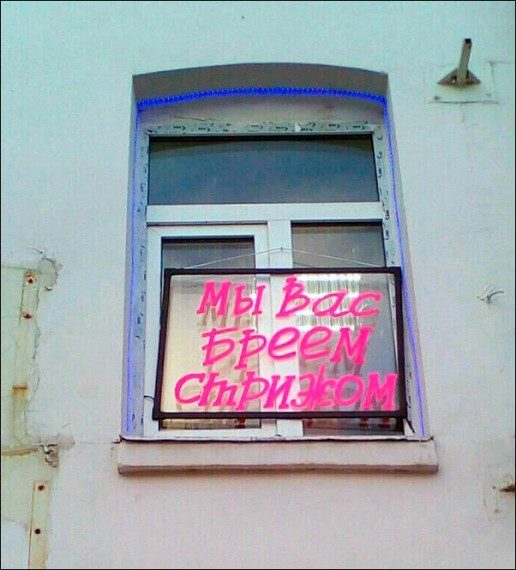 Мы Вас
Бреем
стрижом